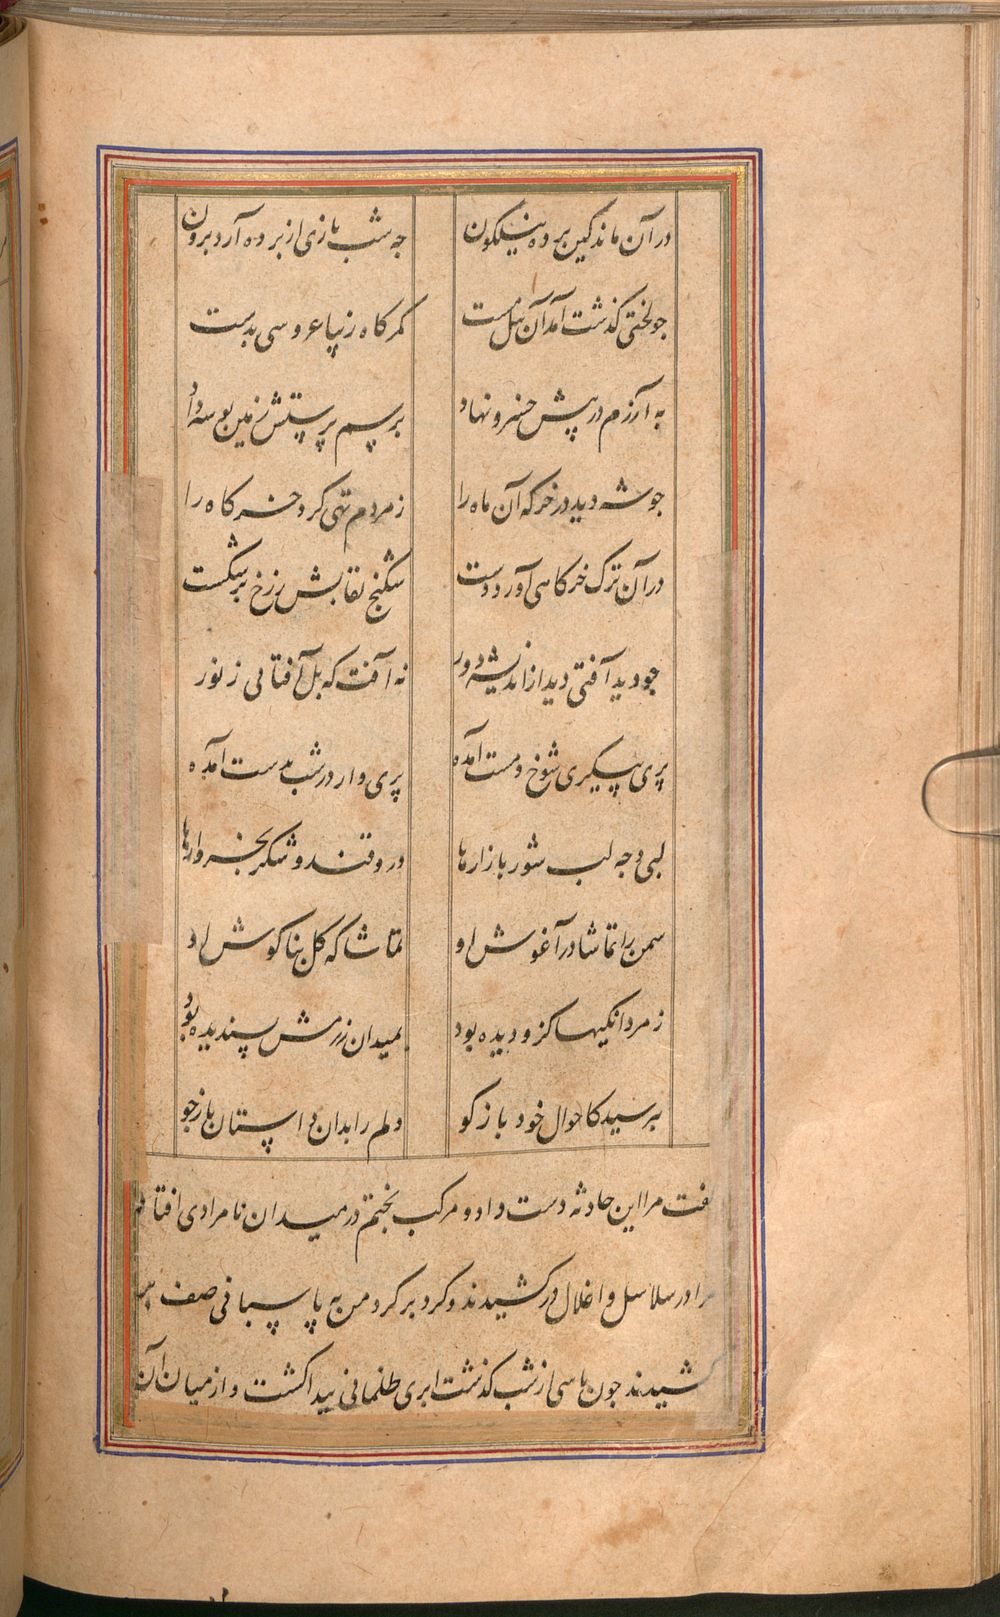 در آن ماند کین برده نیلکون جه شب بازی از برده آرد برون
جو لختی کذشت آمد آن بیل مست کمرکاه زیبا عروسی بدست
به آرزم در پیش خسرو نهاد برسم پرستش زمین بوسه داد
جو شه دید در خرکه آن ماه را ز مردم تهی کرد خرکاه را
در آن ترک خرکاهی آورد دست شکنج نقابش ز رخ برشکست
جو دید آفتی دید از اندیشه دور نه آفت که بل آفتابی ز نور
پری پیکیری شوخ و مست آمده پری وار در شب بدست آمده
لبی و جه لب شور بازارها درو قند و شکر بخروارها
سمن را تماشا در آغوش او تماشاکه کل بناکوش او
ز مردانکیها کزو دیده بود بمیدان رزمش پسندیده بود
ببرسید کاحوال خود بازکو دلم را بدان داستان بازجو
فت مرا این حادثه دست داد و مرکب بختم در میدان نامرادی افتاد
مرا در سلاسل و اغلال درکشیدند و کرد بر کرد من به پاسبانی صف
کشیدند جون باسی از شب کذشت ابری ظلمانی بیدا کشت و از میان آن